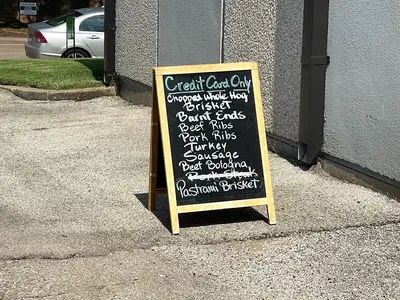 Credit Card Only
Chopped Whole Hog
Brisket
Burnt Ends
Beef Ribs
Pork Ribs
Turkey
Sausage
Beef Bologna
Pork Steak
Pastrami Brisket